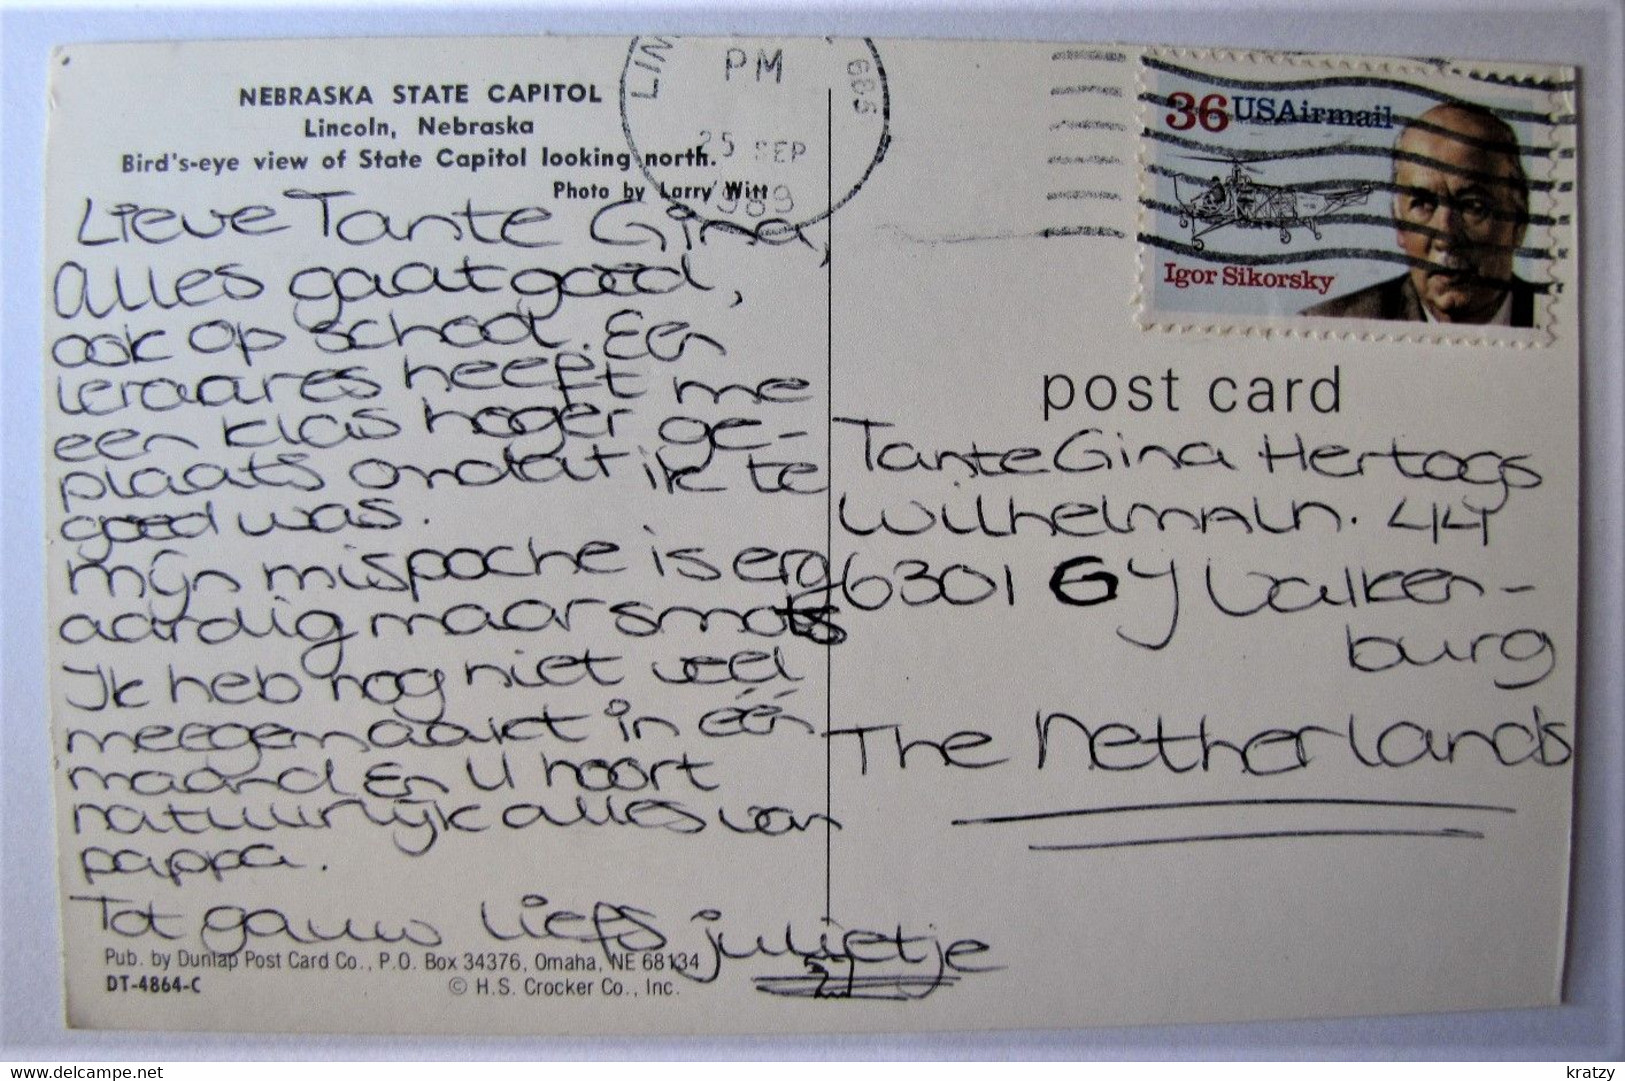 NEBRASKA STATE CAPITOL
Lincoln, Nebraska
Bird's-eye view of State Capitol looking north.
Photo by Larry Witt
Lieve Tante Gina,
alles gaat goed,
ook op school. Een
leraares heeft me
een klas hoger ge-
plaats omdat ik te
goed was.
mijn mispoche is erg
aardig maar smots
Ik heb nog niet veel
meegemaakt in één
maand En u hoort
natuurlijk alles van
pappa.
Tot gauw liefs julietje
Pub. by Dunlap Post Card Co., P.O. Box 34376, Omaha, NE 68134
DT-4864-C
© H.S. Crocker Co., Inc.
LIN
PM
685
25 SEP
1989
36 USAirmail
Igor Sikorsky
post card
Tante Gina Hertogs
Wilhelmaln. 44
6301 GY Valken-
burg
The Netherlands
delcampe.net
kratzy